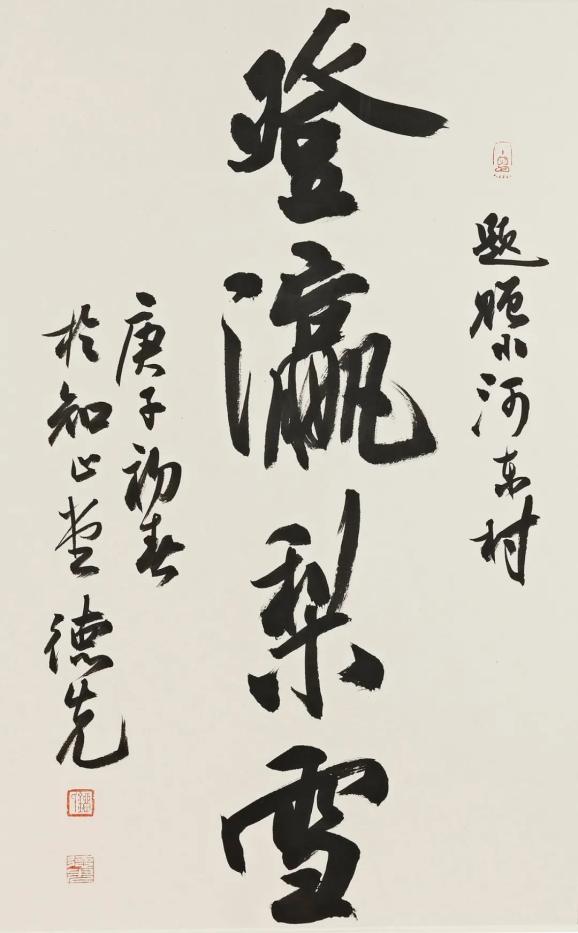 题赠小河东村
登瀛梨雪
庚子初春
於知止堂 德先